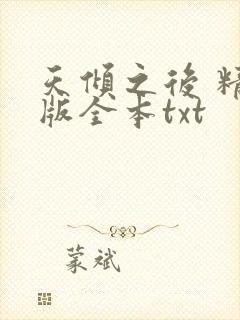 天傾之後 精
版全本txt
蒙斌